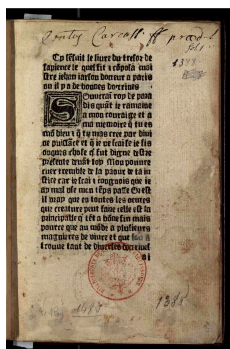 Cy sēsuit le liure du tresor de
sapience le quel fit ⁊ cōposa mai
stre iehan iarson docteur a paris
ou il y a de bonnes doctrines
Souuerai roy de para
dis quāt ie ramaine
a mon couraige et a
ma memoire q̄ tu es
mō dieu ⁊ q̄ tu mas cree par diui
ne puissāce et q̄ ie ne scai se ie fis
onques chose q̄ fut digne destre
presente deuāt toy Mon pouure
cuer tremble de la paour de ta iu
stice car ie scai ⁊ congnois que ie
ay mal vse mon tēps passe Or est
il vray que en toutes les oeuures
que creature peut faire celle est la
principalle q̄ tēt a bōne fin mais
pource que au mōde a plusieurs
manieres de viure et que lon a
trouue tant de diuerses doctrines
1388
1388